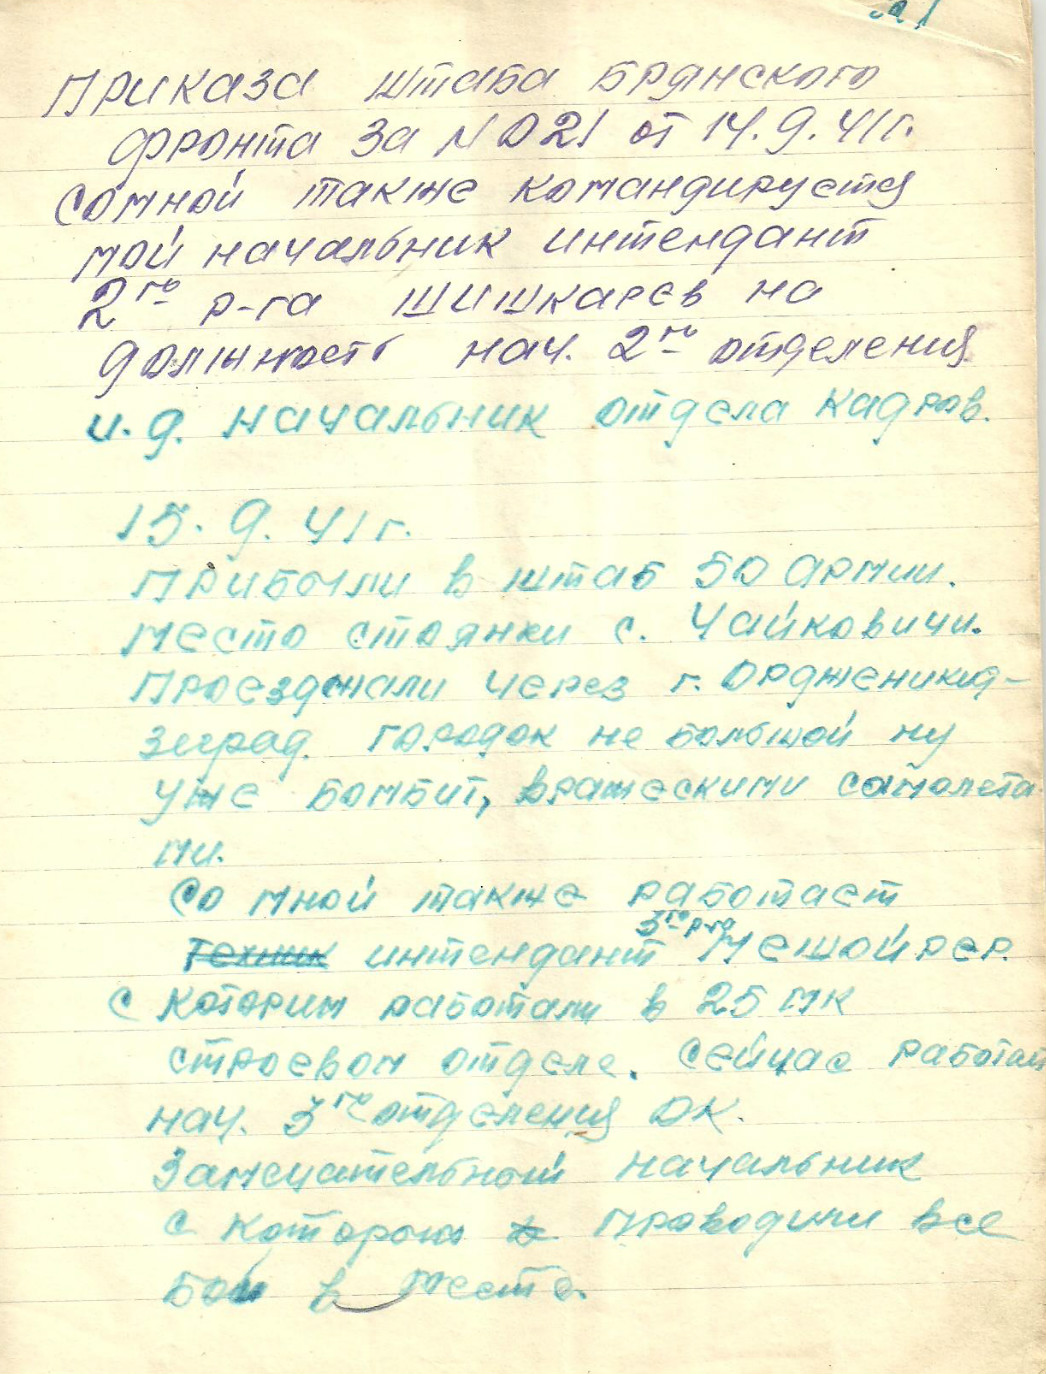 21
Приказа штаба Брянского
фронта за N 021 от 14.9.41г.
Сомной также командируется
мой начальник интендант
2го р-га Шишкарев на
должность нач. 2го отделения
и.д. начальник отдела кадров.
15.9.41г.
Прибыли в штаб 50 армии.
место стоянки с. Чайковичи.
Проезджали через г. Ордженикид-
зеград. городок не большой ну
уже бомбит, вражескими самолета-
ми.
Со мной также работает
техник интендант 3го р-га Мешойрер.
с которим работали в 25 мк
строевом отделе. Сейчас работает
нач. 3го отделения ОК.
Замечательный начальник
с которым в проводили все
бои в месте.